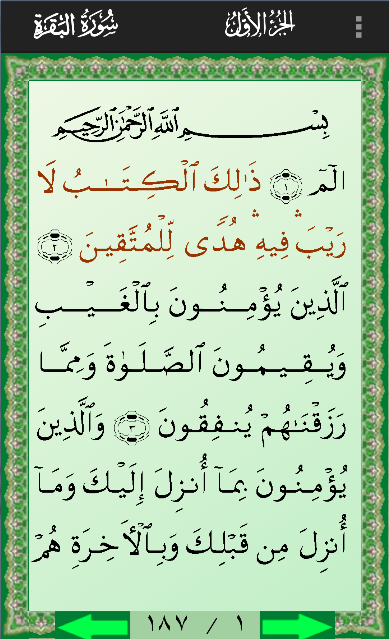 سُورَةُ الْبَقَرَةِ الجُزْءُ الأَوَّلُ
بِسْمِ ٱللَّهِ ٱلرَّحْمَٰنِ ٱلرَّحِيمِ
الٓمٓ ﴿١﴾ ذَٰلِكَ ٱلْكِتَـٰبُ لَا
رَيْبَ ۛ فِيهِ ۛ هُدًى لِّلْمُتَّقِينَ ﴿٢﴾
ٱلَّذِينَ يُؤْمِنُونَ بِٱلْغَيْبِ
وَيُقِيمُونَ ٱلصَّلَوٰةَ وَمِمَّا
رَزَقْنَـٰهُمْ يُنفِقُونَ ﴿٣﴾ وَٱلَّذِينَ
يُؤْمِنُونَ بِمَآ أُنزِلَ إِلَيْكَ وَمَآ
أُنزِلَ مِن قَبْلِكَ وَبِٱلْأَخِرَةِ هُمْ
١٨٧ / ١